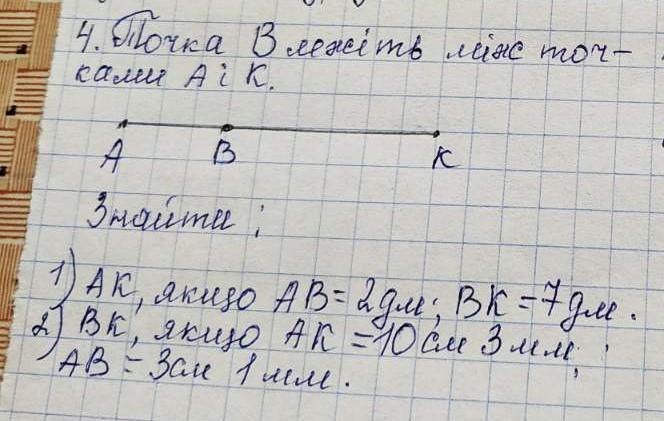 4. Точка В лежіть між точ-
ками А і К.
А В К
Знайти:
1) АК, якщо АВ = 2дм; ВК = 7дм.
2) ВК, якщо АК = 10см 3мм;
АВ = 3см 1мм.